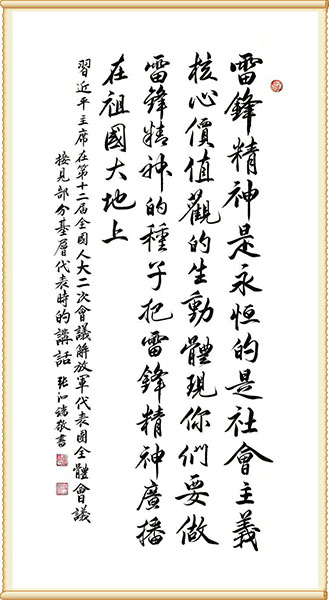 雷鋒精神是永恒的是社會主義
核心價值觀的生動體現你們要做
雷鋒精神的種子把雷鋒精神廣播
在祖國大地上
習近平主席在第十二屆全國人大二次會議解放軍代表團全體會議
接見部分基層代表時的講話 張泗錦敬書